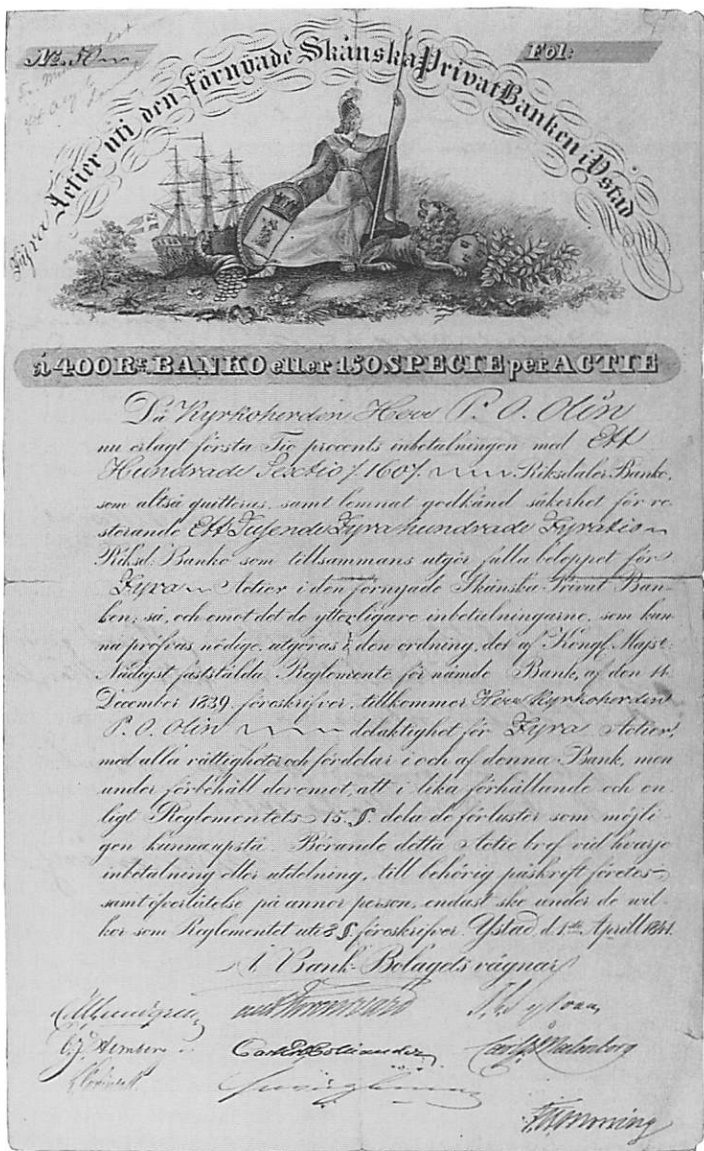 No. 50
Föl:
Fyra Actier uti den förnyade Skånska Privat Banken i Ystad
à 400 Rd BANKO eller 150 SPECIE per ACTIE
Då Kyrkoherden Herr P. O. Olin
nu erlagt första Tio procents inbetalningen med Ett
Hundrade Sextio /:160:/ Riksdaler Banko,
som altså quitteras, samt lemnat godkänd säkerhet för re-
sterande Ett Tusende Fyrahundrade Fyratio
Riksd. Banko som tillsammans utgör fulla beloppet för
Fyra Actier i den förnyade Skånska Privat Ban-
ken; så, och emot det de ytterligare inbetalningarne, som kun-
na pröfvas nödige, utgöras i den ordning, det af Kongl. Majst:
Nådigst fastställda Reglemente för nämde Bank, af den 14
December 1839 föreskrifver, tillkommer Herr Kyrkoherden
P. O. Olin delaktighet för Fyra Actier,
med alla rättigheter och fördelar i och af denna Bank, men
under förbehåll deremot, att i lika förhållande och en-
ligt Reglementets 15 §. dela de förluster som möjli-
gen kunna upstå. Börande detta Actie bref vid hvarje
inbetalning eller utdelning, till behörig påskrift företes
samt öfverlåtelse på annor person, endast ske under de wil-
kor som Reglementet uti 8 §. föreskrifver. Ystad d. 1sta Aprill 1841.
À Bank-Bolagets vägnar
Carl M. Colliander
Carl Malmborg
F. Hemming